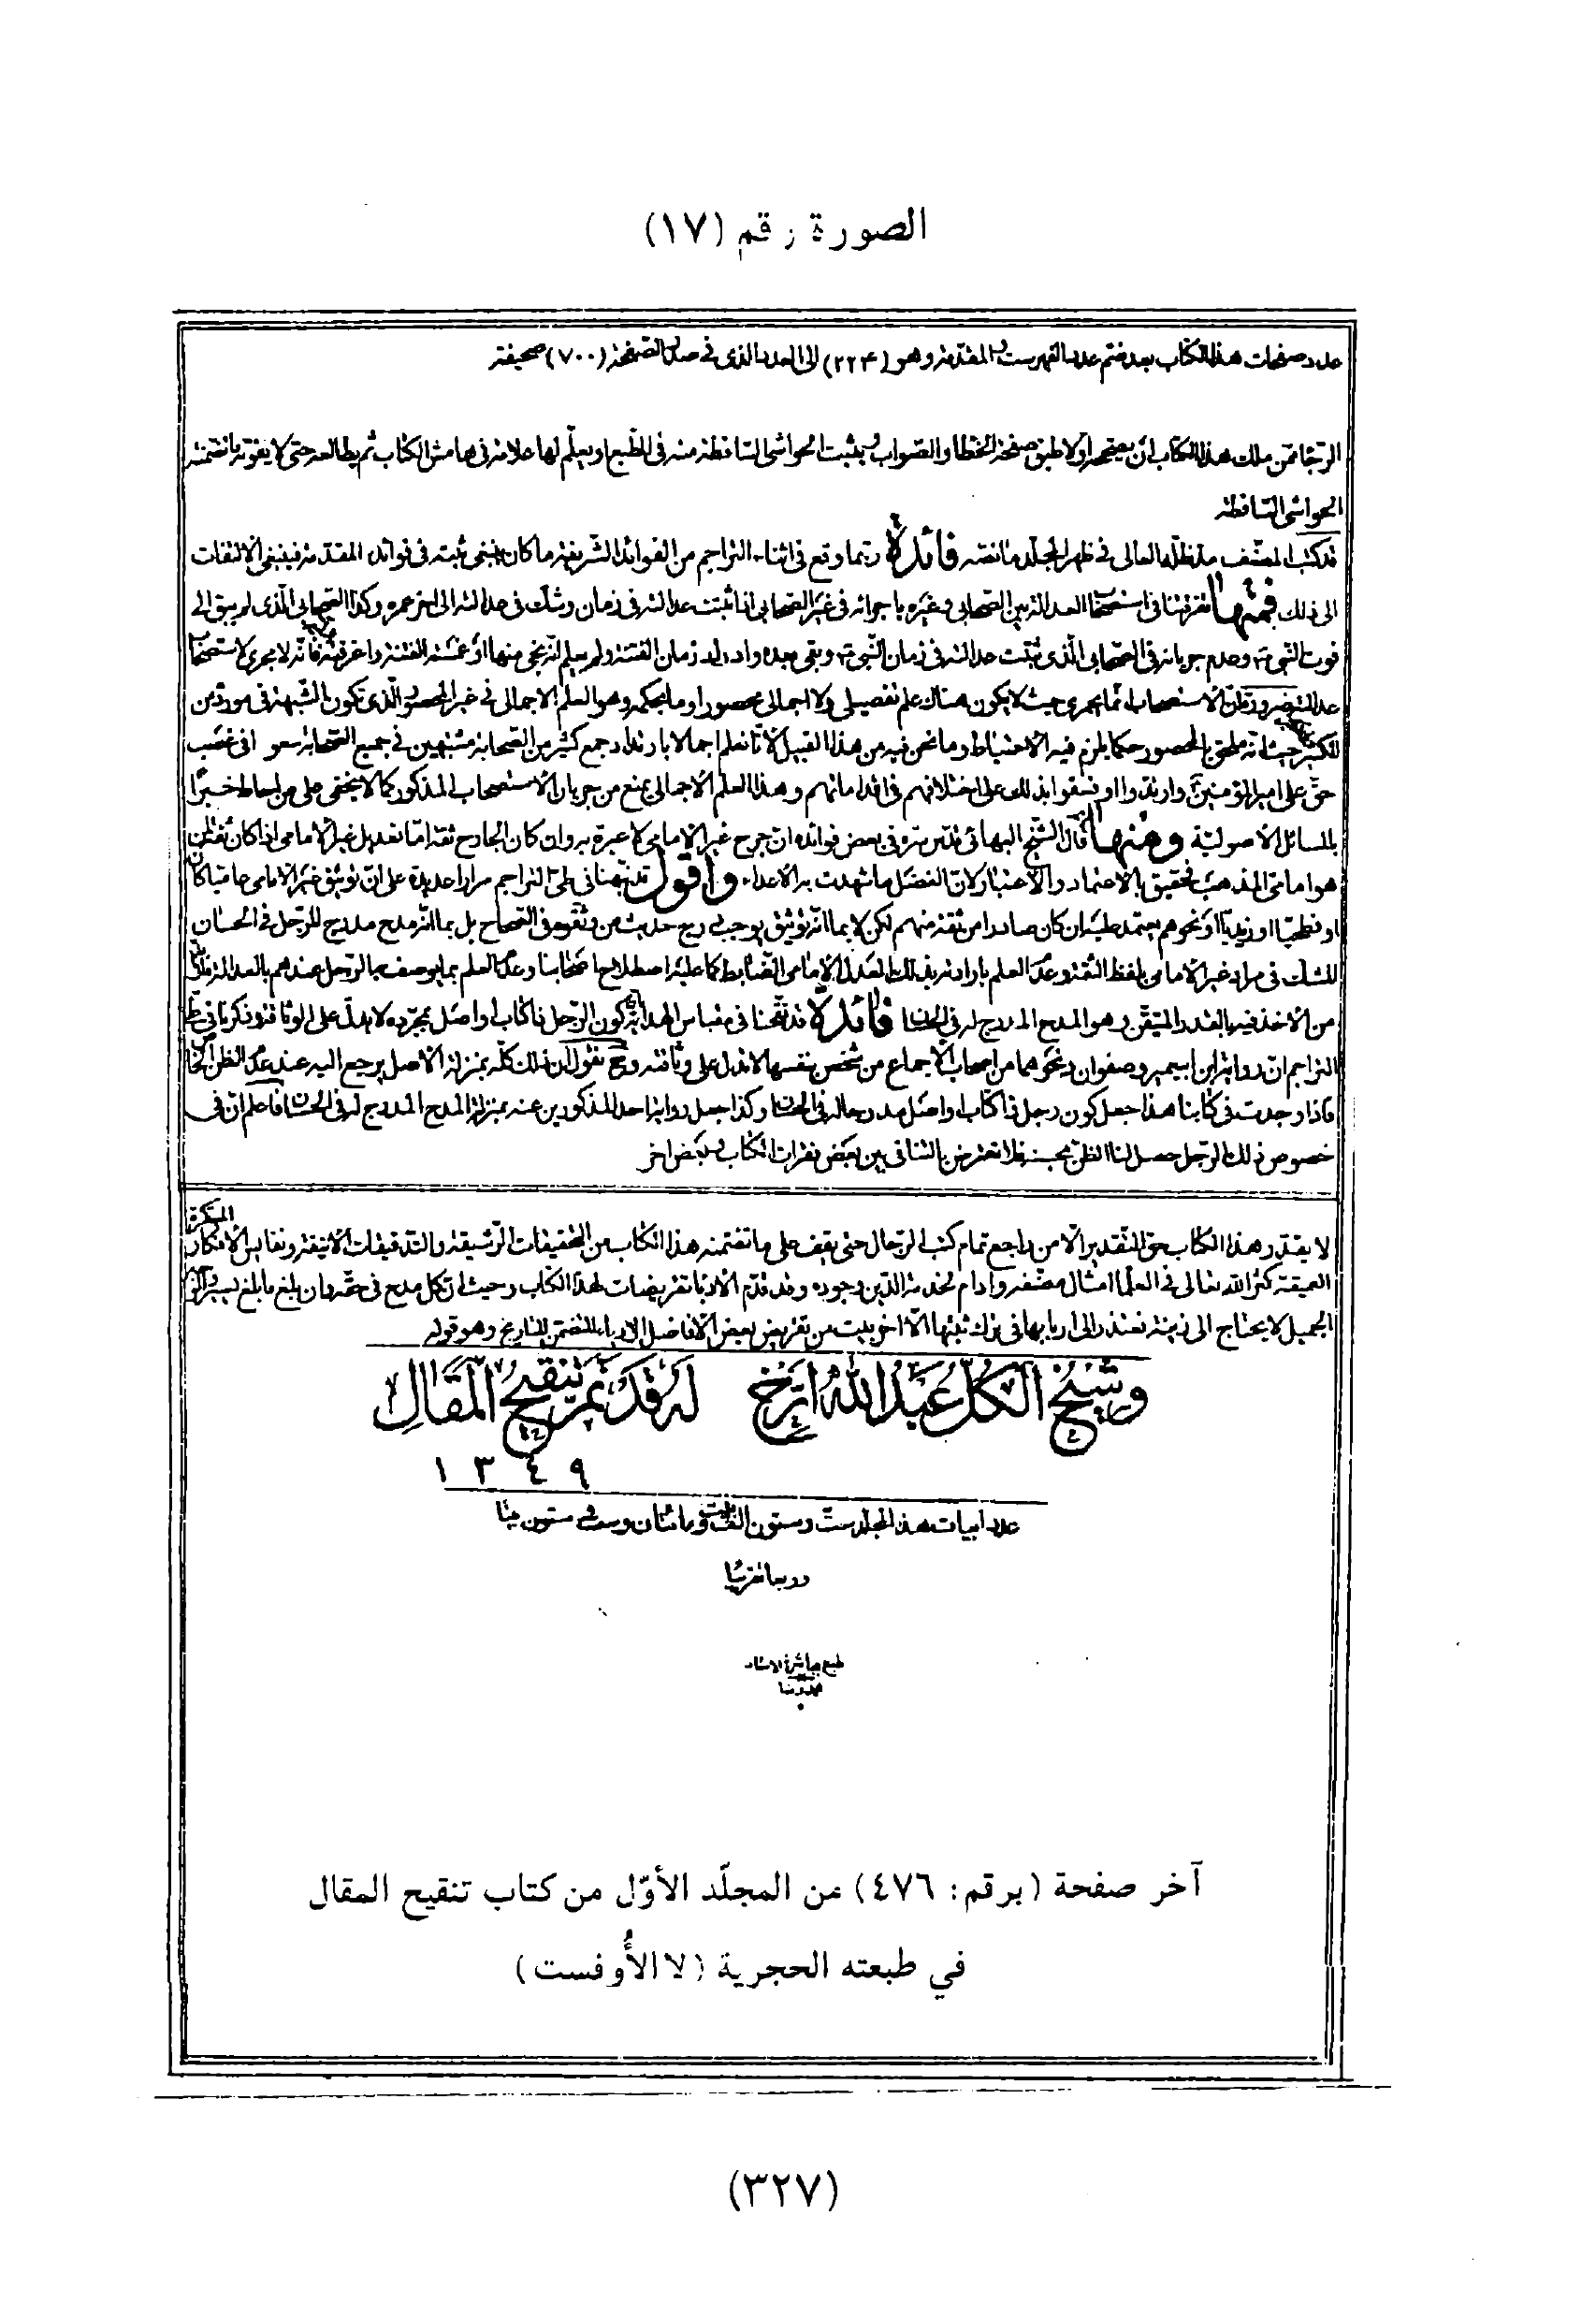 الصورة رقم (١٧)
عدد صفحات هذا الكتاب بعد ضم عدد الفهرست والمقدمة وهو (٢٢٤) الى العدد الذى فى صدر الصفحة (٧٠٠) صحيفة
الرجاء ممن ملك هذا الكتاب ان يصححه اولا طبق صفحة الخطا والصواب ويثبت الحواشى الساقطة منه فى الطبع او يعلّم لها علامة فى هامش الكتاب ثم يطالعه حتى لا يفوته ما تضمنته
الحواشى الساقطة
قد كتب المصنف مد ظله العالى فى ظهر المجلد ما نصه فائدة ربما وقع فى اثناء التراجم من الفوائد الشريفة ما كان ينبغى ثبته فى فوائد المقدمة فينبغى الالتفات
الى ذلك فمنها تفرقتنا فى استصحاب العدالة بين الصحابى وغيره باجرائه فى غير الصحابى اذا ثبتت عدالته فى زمان وشك فى عدالته الى اخر عمره وكذا الصحابى الذى لم يبق الى
فوت النبى ص وعدم جريانه فى الصحابى الذى ثبتت عدالته فى زمان النبى ص وبقى بعده وادرك زمان الفتنة ولم يعلم انه نجى منها او غمسته الفتنة واغرقته فانه لا يجرى استصحاب
عدالته ضرورة ان الاستصحاب انما يجرى حيث لا يكون هناك علم تفصيلى ولا اجمالى محصور او ما بحكمه وهو العلم الاجمالى فى غير المحصور الذى تكون الشبهة فى مورده من
الكثير حيث انه ملحق بالمحصور حكما يلزم فيه الاحتياط وما نحن فيه من هذا القبيل لانا نعلم اجمالا بارتداد جمع كثير من الصحابة مشتبهين فى جميع الصحابة سعوا فى غصب
حق على امير المؤمنين وارتدوا او فسقوا بذلك على اختلافهم فى اقداماتهم وهذا العلم الاجمالى يمنع من جريان الاستصحاب المذكور كما لا يخفى على من احاط خبرا
بالمسائل الاصولية ومنها قال الشيخ البهائى قدس سره فى بعض فوائده ان جرح غير الامامى لا عبرة به وان كان الجارح ثقة اما تعديل غير الامامى اذا كان ثقة لمن
هو امامى المذهب فحقيق بالاعتماد والاعتبار لان الفضل ما شهدت به الاعداء واقول قد نبهنا فى طى التراجم مرارا عديدة على ان توثيق غير الامامى عاميا كان
او فطحيا او زيديا او نحوهم يعتمد عليه ان كان صادرا من ثقة منهم لكن لا بما انه توثيق يوجب درج حديث من وثقوه فى الصحاح بل بما انه مدح مدرج للرجل فى الحسان
للشك فى مراد غير الامامى بلفظ الثقة وعدم العلم بارادته بذلك العدل الامامى الضابط كما عليه اصطلاح اصحابنا وعدم العلم بما يوصف به الرجل عندهم بالعدالة فلابد
من الاخذ فيه بالقدر المتيقن وهو المدح المدرج له فى الحسان فائدة قد نقحنا فى مقباس الهداية كون الرجل ذا كتاب او اصل بمجرده لا يدل على الوثاقة وذكرنا فى طى
التراجم ان رواية ابن ابيعمير وصفوان ونحوهما من اصحاب الاجماع من شخص بنفسها لا تدل على وثاقته وح نقول ان ذلك كله بمنزلة الاصل يرجع اليه عند عدم الظن الخاص
فاذا وجدت فى كتابنا هذا جعل كون رجل ذا كتاب او اصل مدرجا له فى الحسان وكذا جعل رواية احد المذكورين عنه بمنزلة المدح المدرج له فى الحسان فاعلم ان فى
خصوص ذلك الرجل حصل لنا الظن بحسنه فلا تعترض بالتنافى بين بعض فقرات الكتاب وبعض اخر
لا يقدر هذا الكتاب حق التقدير الا من راجع تمام كتب الرجال حتى يقف على ما تضمنه هذا الكتاب من التحقيقات الرشيقة والتدقيقات الانيقة ونفايس الافكار المبتكرة
العميقة كثر الله تعالى فى العلماء امثال مصنفه وادام لخدمة الدين وجوده وقد قدم الادباء تقريضات لهذا الكتاب وحيث ان كل مدح فى حقه وان بلغ ما بلغ يسير اذ
الجميل لا يحتاج الى زينة نعتذر الى اربابها فى ترك ثبتها الا اخر بيت من تقريض بعض الافاضل الادباء المتضمن للتاريخ وهو قوله
وشيخ الكل عبد الله ارخ له قد تم تنقيح المقال
١٣٤٩
عدد ابيات هذا المجلد ست وستون الف بيت ومائتان وست وستون بيتا
تقريبا
طبع بمباشرة الاستاد
محمد رضا
آخر صفحة (برقم: ٤٧٦) من المجلّد الأوّل من كتاب تنقيح المقال
في طبعته الحجرية (لا الأُوفست)
(٣٢٧)